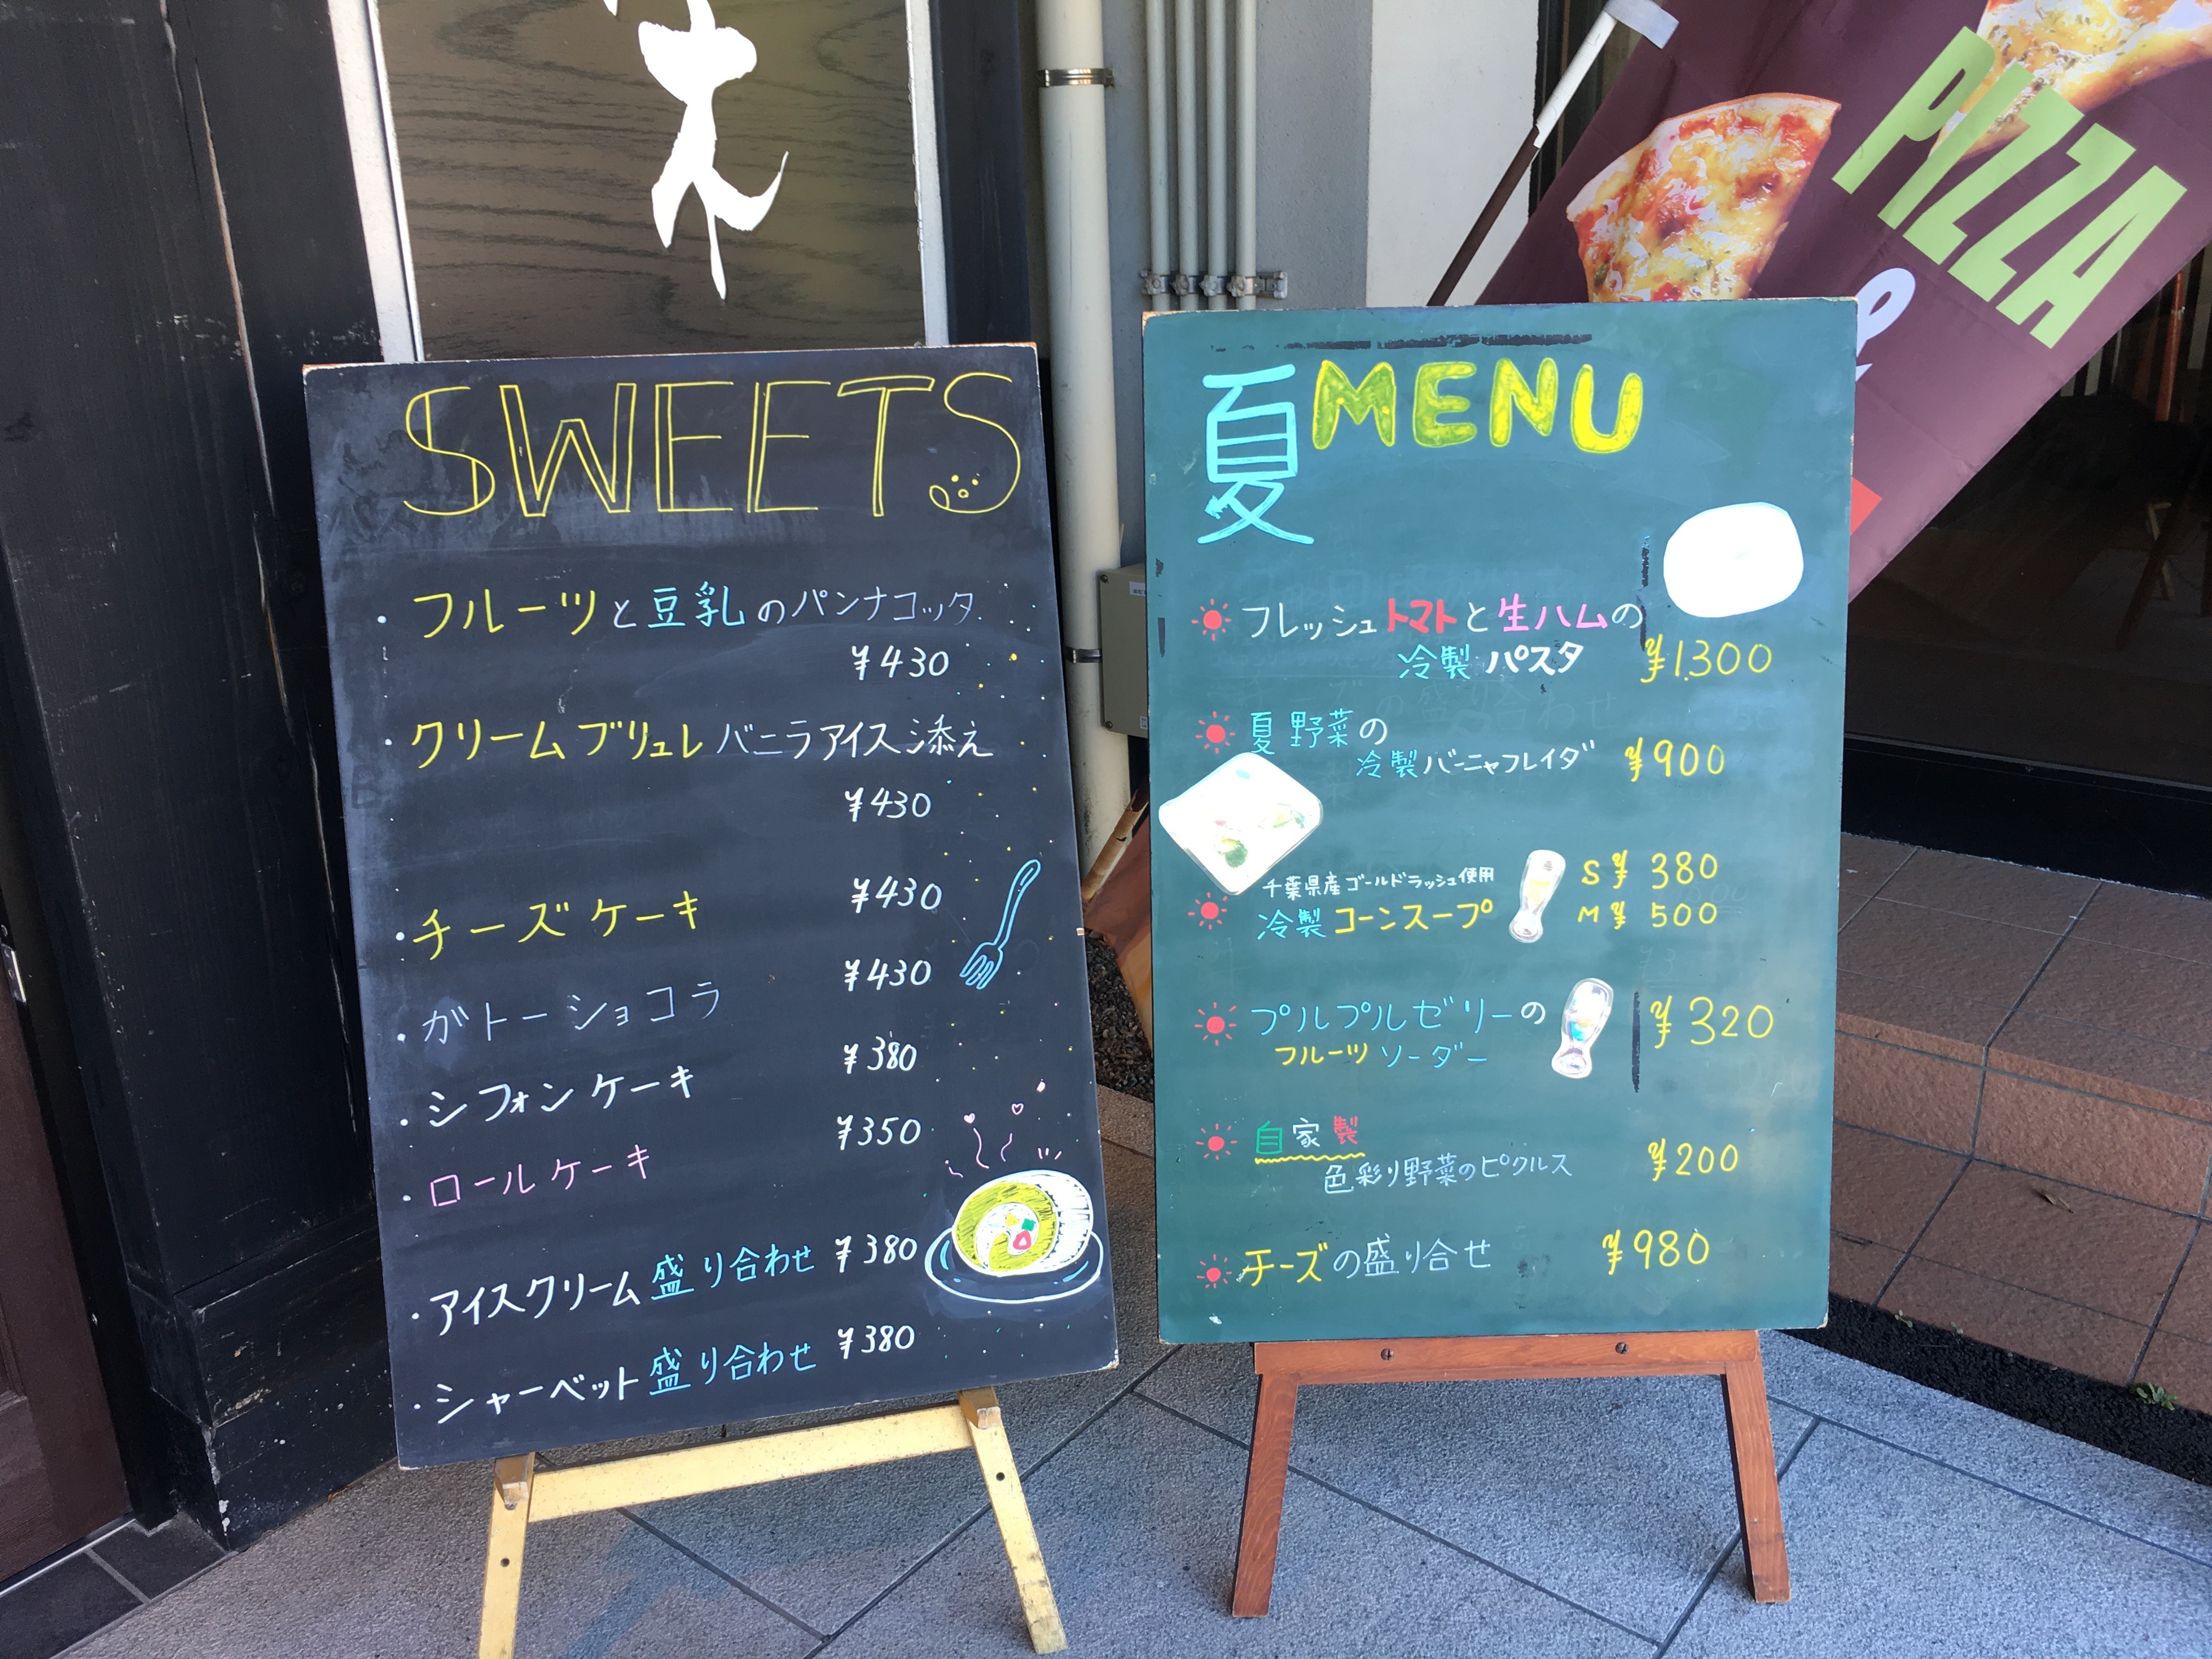 SWEETS
・フルーツと豆乳のパンナコッタ
¥430
・クリームブリュレ バニラアイス添え
¥430
・チーズケーキ ¥430
・ガトーショコラ ¥430
・シフォンケーキ ¥380
・ロールケーキ ¥350
・アイスクリーム盛り合わせ ¥380
・シャーベット盛り合わせ ¥380
夏MENU
フレッシュトマトと生ハムの
冷製パスタ ¥1,300
夏野菜の
冷製バーニャフレイダ ¥900
千葉県産ゴールドラッシュ使用 S¥ 380
冷製コーンスープ M¥ 500
プルプルゼリーの ¥320
フルーツソーダー
自家製
色彩り野菜のピクルス ¥200
チーズの盛り合せ ¥980
PIZZA
&